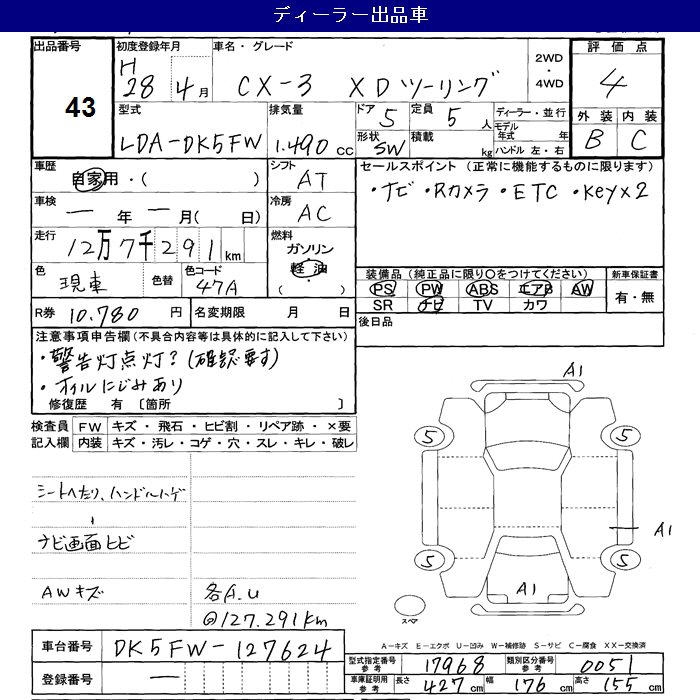 ディーラー出品車
出品番号
43
初度登録年月
H
28年 4月
車名・グレード
CX-3 XDツーリング
2WD
・4WD
評価点
4
外装 内装
B C
型式
LDA-DK5FW
排気量
1.490 cc
ドア 5
定員 5 人
形状 SW
積載 kg
ディーラー・並行
モデル年式 年
ハンドル 左・右
車歴
自家用・( )
シフト
AT
車検
一 年 一 月( 日)
冷房
AC
走行
12万7千291km
燃料
ガソリン
軽油
( )
色
現車
色替
色コード
47A
セールスポイント (正常に機能するものに限ります)
・ナビ・Rカメラ・ETC・Key×2
装備品 (純正品に限り○をつけてください)
PS PW ABS エアB AW
SR ナビ TV カワ
新車保証書
有・無
R券 10.780 円
名変期限 月 日
後日品
注意事項申告欄(不具合内容等は具体的に記入して下さい)
・警告灯点灯?(確認要す)
・オイルにじみあり
修復歴 有 〔箇所 〕
検査員記入欄
FW キズ・飛石・ヒビ割・リペア跡・×要
内装 キズ・汚レ・コゲ・穴・スレ・キレ・破レ
シートヘたり、ハンドルハゲ
ナビ画面ヒビ
AWキズ
各A.U
@127.291km
A1
5 5
A1
5 5
A1
スペア
A-キズ E-エクボ U-凹み W-補修跡 S-サビ C-腐食 XX-交換済
車台番号 DK5FW-127624
登録番号 一
型式指定番号 参考 17968
類別区分番号 参考 0051
車庫証明用 参考 長さ 427cm 幅 176cm 高さ 155cm